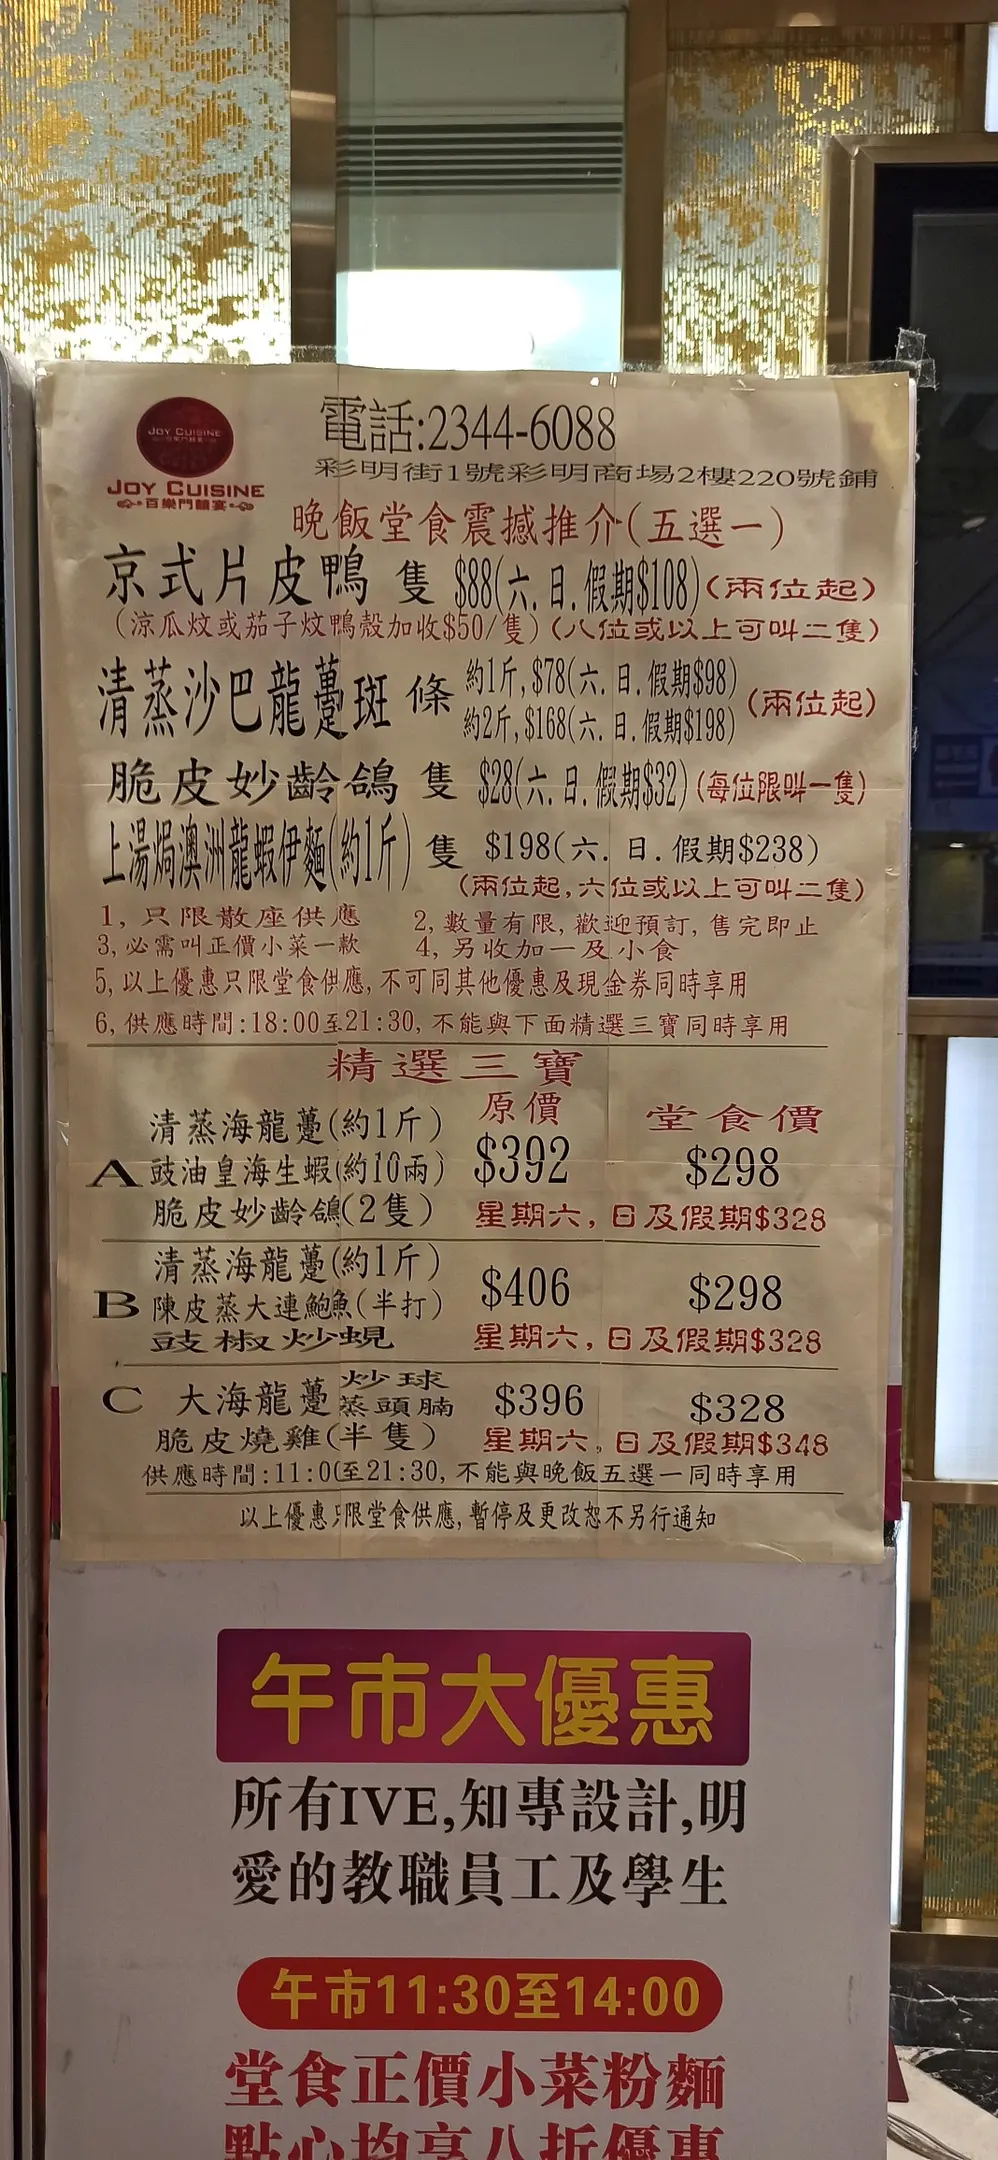 JOY CUISINE
JOY CUISINE
百樂門囍宴
電話:2344-6088
彩明街1號彩明商場2樓220號鋪
晚飯堂食震撼推介(五選一)
京式片皮鴨 隻 $88(六.日.假期$108)(兩位起)
(涼瓜炆或茄子炆鴨殼加收$50/隻)(八位或以上可叫二隻)
清蒸沙巴龍躉斑 條 約1斤,$78(六.日.假期$98)
約2斤,$168(六.日.假期$198)
(兩位起)
脆皮妙齡鴿 隻 $28(六.日.假期$32)(每位限叫一隻)
上湯焗澳洲龍蝦伊麵(約1斤) 隻 $198(六.日.假期$238)
(兩位起,六位或以上可叫二隻)
1,只限散座供應 2,數量有限,歡迎預訂,售完即止
3,必需叫正價小菜一款 4,另收加一及小食
5,以上優惠只限堂食供應,不可同其他優惠及現金券同時享用
6,供應時間:18:00至21:30,不能與下面精選三寶同時享用
精選三寶
原價 堂食價
清蒸海龍躉(約1斤)
A 豉油皇海生蝦(約10兩) $392 $298
脆皮妙齡鴿(2隻) 星期六,日及假期$328
清蒸海龍躉(約1斤)
B 陳皮蒸大連鮑魚(半打) $406 $298
豉椒炒蜆 星期六,日及假期$328
C 大海龍躉 炒球
蒸頭腩 $396 $328
脆皮燒雞(半隻) 星期六,日及假期$348
供應時間:11:00至21:30,不能與晚飯五選一同時享用
以上優惠只限堂食供應,暫停及更改恕不另行通知
午市大優惠
所有IVE,知專設計,明
愛的教職員工及學生
午市11:30至14:00
堂食正價小菜粉麵
點心均享八折優惠